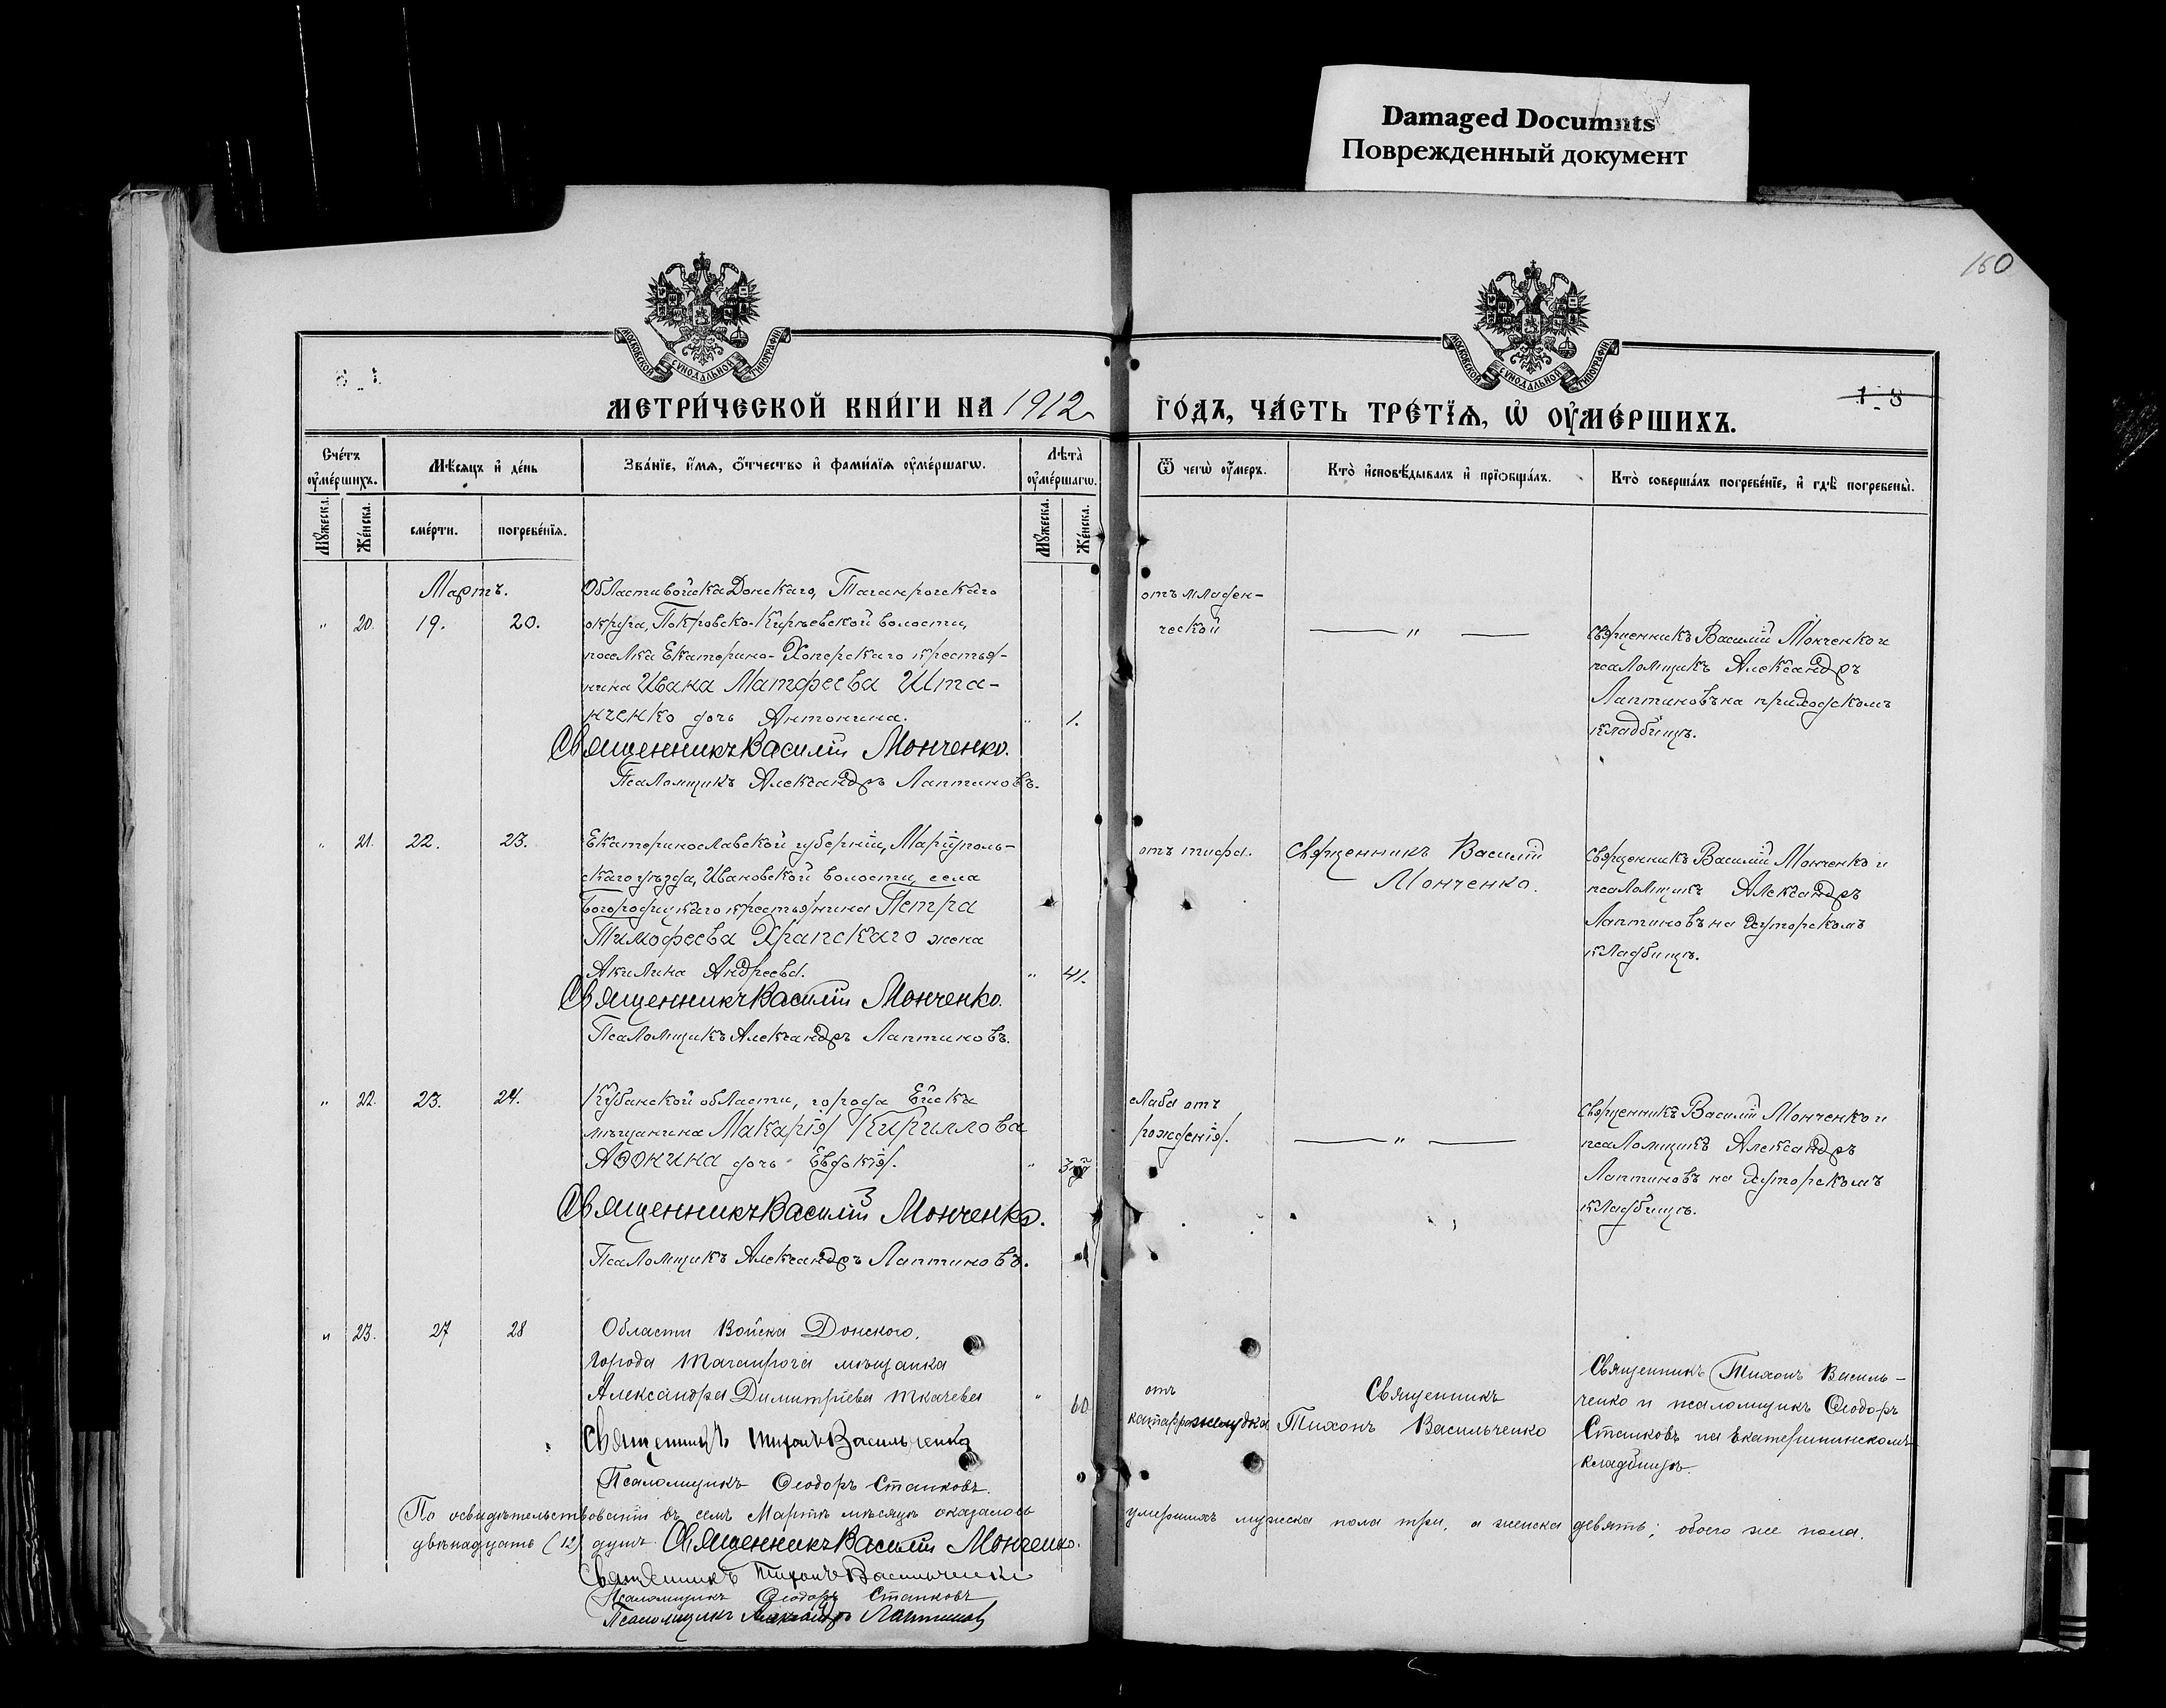 Damaged Documnts
Поврежденный документ
160
МОСКОВСКОЙ СѴНОДАЛЬНОЙ ТИПОГРАФІИ
МОСКОВСКОЙ СѴНОДАЛЬНОЙ ТИПОГРАФІИ
МЕТРИ́ЧЕСКОЙ КНИ́ГИ НА 1912
ГО́ДЪ, ЧА́СТЬ ТРЕ́ТЇѦ, Ѡ҆ ОУ҆МЕ́РШИХЪ.
Сче́тъ оу҆ме́ршихъ.
Мꙋ́жеска.
Же́нска.
Мѣ́сѧцъ и҆ де́нь
сме́рти.
погребе́нїѧ.
Зва́нїе, и҆́мѧ, ѻ҆́тчество и҆ фами́лїѧ оу҆ме́ршагѡ.
Лѣ́та оу҆ме́ршагѡ.
Мꙋ́жеска.
Же́нска.
Ѿ чегѡ̀ оу҆́меръ.
Кто̀ и҆сповѣ́дывалъ и҆ прїѡбща́лъ.
Кто̀ соверша́лъ погребе́нїе, и҆ гдѣ̀ погребены̀.
Мартъ.
" 20. 19. 20.
Области войска Донскаго, Таганрогскаго
округа, Покровско-Кирѣевской волости,
поселка Екатерино-Хоперскаго крестья-
нина Ивана Матфеева Шта-
нченко дочь Антонина. " 1.
Священникъ Василій Монченко.
Псаломщикъ Александръ Лаптиновъ.
отъ младен-
ческой
— " —
Священникъ Василій Монченко и
псаломщикъ Александръ
Лаптиновъ на приходскомъ
кладбищѣ.
" 21. 22. 23.
Екатеринославской губерніи, Маріуполь-
скаго уѣзда, Ивановской волости, села
Богородицкаго крестьянина Петра
Тимофеева Храпскаго жена
Акилина Андреева. " 41.
Священникъ Василій Монченко.
Псаломщикъ Александръ Лаптиновъ.
отъ тифа.
Священникъ Василій
Монченко.
Священникъ Василій Монченко и
псаломщикъ Александръ
Лаптиновъ на хуторскомъ
кладбищѣ.
" 22. 23. 24.
Кубанской области, города Ейска
мѣщанина Макарія Кириллова
дочь Евдокія. "
Священникъ Василій Монченко.
Псаломщикъ Александръ Лаптиновъ.
слаба отъ
рожденія.
— " —
Священникъ Василій Монченко и
псаломщикъ Александръ
Лаптиновъ на хуторскомъ
кладбищѣ.
" 23. 27 28
Области Войска Донского,
города Таганрога мѣщанка
Александра Димитріева Ткачева " 60
Священникъ Тихонъ Васильченко
Псаломщикъ Ѳеодоръ Станковъ.
отъ
катарра желудка
Священникъ
Тихонъ Васильченко
Священникъ Тихонъ Василь-
ченко и псаломщикъ Ѳеодоръ
Станковъ на Екатерининскомъ
кладбищѣ.
По освидѣтельствованіи въ семъ Мартѣ мѣсяцѣ оказалось умершихъ мужеска пола три, а женска девять; обоего же пола
двѣнадцать (12) душъ. Священникъ Василій Монченко.
Священникъ Тихонъ Васильченко
Псаломщикъ Ѳеодоръ Станковъ
Псаломщикъ Александръ Лаптиновъ